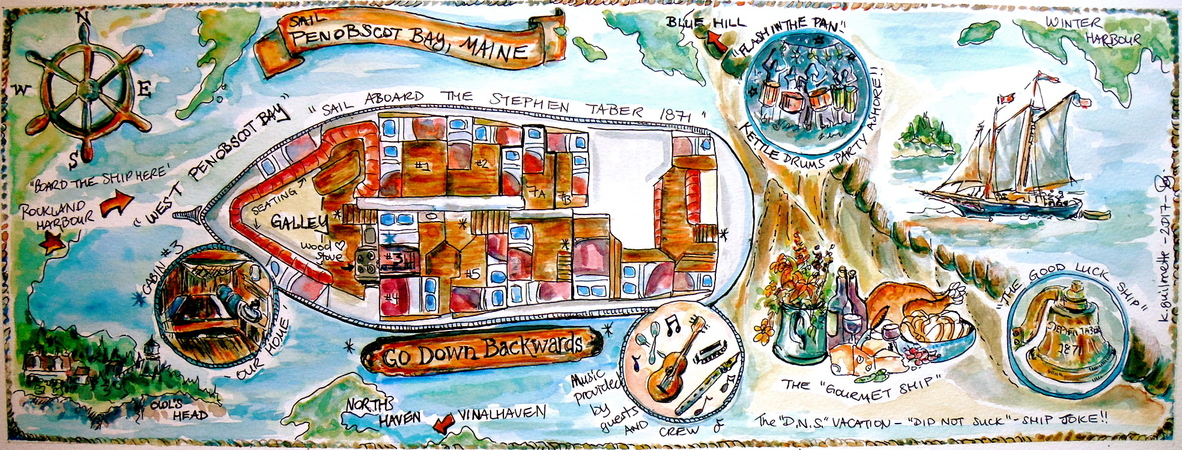 N
W
E
S
SAIL
PENOBSCOT BAY, MAINE
BLUE HILL
"FLASH IN THE PAN"!
ASHORE!!
KETTLE DRUMS - PARTY
WINTER
HARBOUR
"WEST PENOBSCOT BAY"
"SAIL ABOARD THE STEPHEN TABER 1871"
"BOARD THE SHIP HERE'
ROCKLAND
HARBOUR
SEATING
GALLEY
Wood
Stove
#1
#2
#3
#4
#5
TA
B
CABIN #3
"OUR HOME'
GO DOWN BACKWARDS
OWL'S
HEAD
NORTH
HAVEN
VINALHAVEN
Music
provided
by
guests
AND CREW
THE "GOURMET SHIP"
"THE GOOD LUCK SHIP"
STEPHEN TABER
1871
The "D.N.S" VACATION - "DID NOT SUCK" - SHIP JOKE!!
K. Builmette - 2017 -